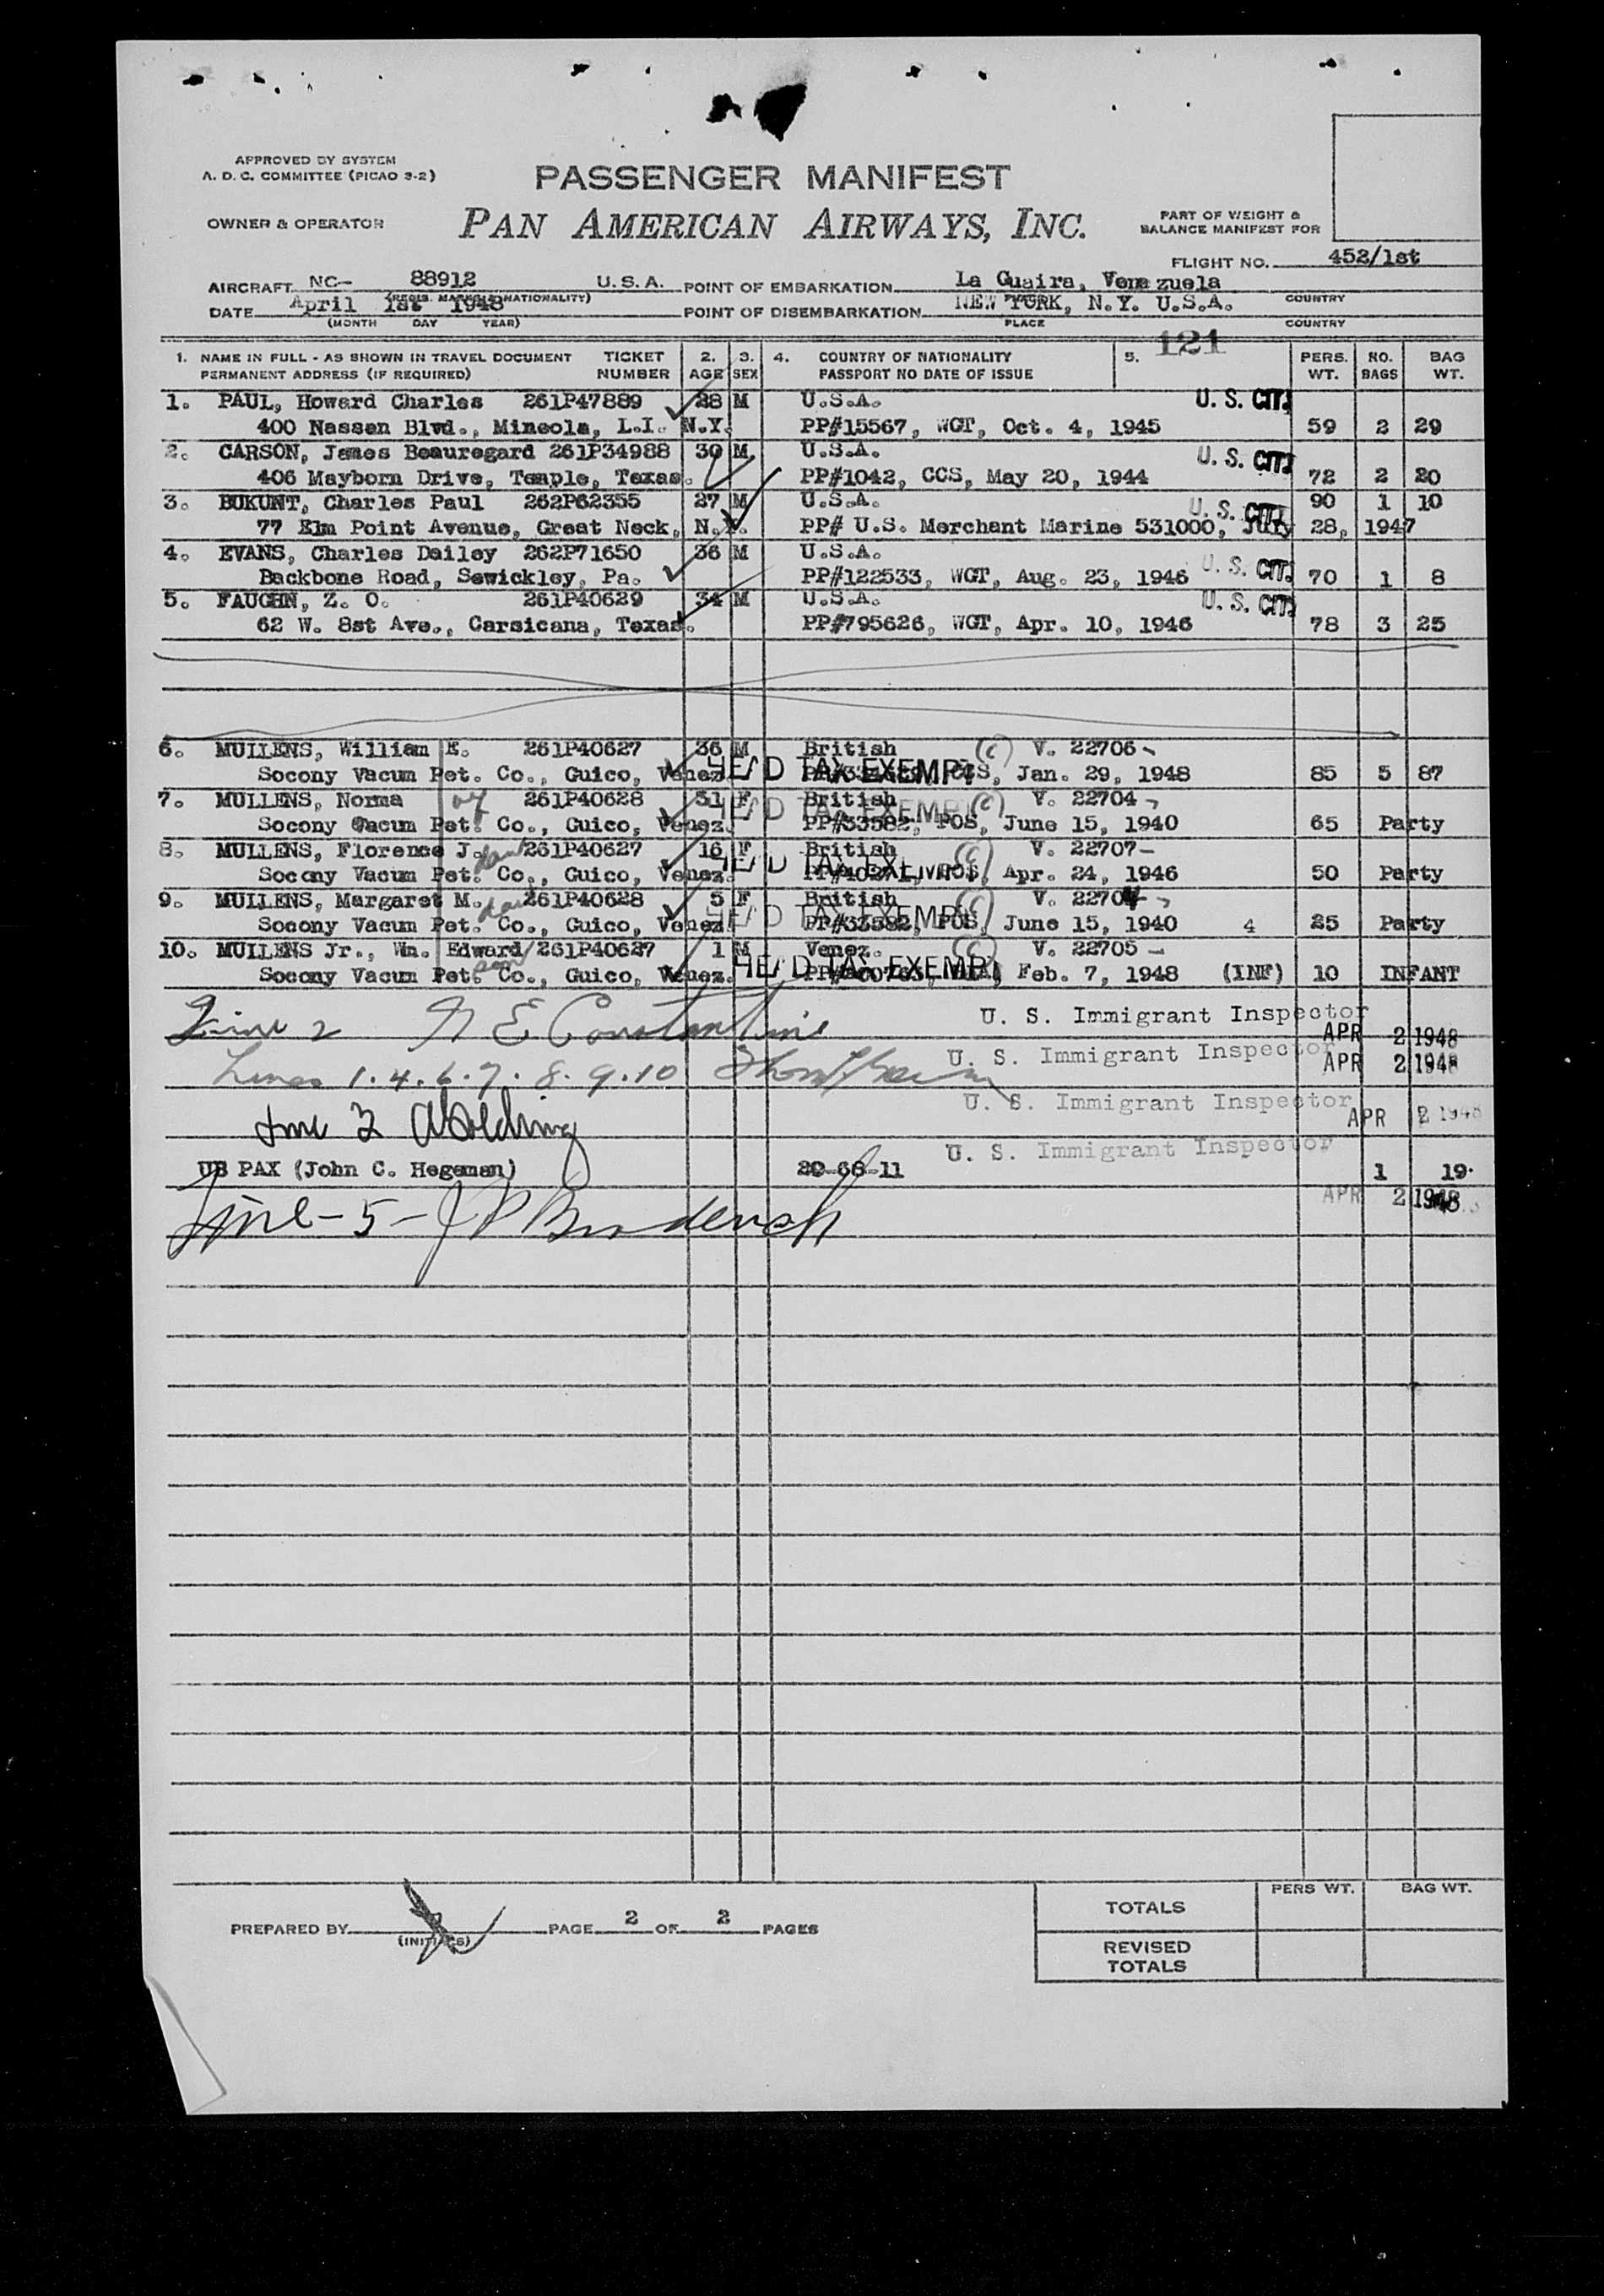 APPROVED BY SYSTEM
A. D. C. COMMITTEE (PICAO 3-2)
PASSENGER MANIFEST
OWNER & OPERATOR
PAN AMERICAN AIRWAYS, INC.
PART OF WEIGHT &
BALANCE MANIFEST FOR
FLIGHT NO. 452/1st
AIRCRAFT NC- 88912 U.S.A. POINT OF EMBARKATION La Guaira, Venezuela
(REGIS. MARKS & NATIONALITY) COUNTRY
DATE April 1st 1948 POINT OF DISEMBARKATION NEW YORK, N.Y. U.S.A.
(MONTH DAY YEAR) PLACE COUNTRY
121
1. NAME IN FULL - AS SHOWN IN TRAVEL DOCUMENT TICKET 2. 3. 4. COUNTRY OF NATIONALITY 5. PERS. NO. BAG
PERMANENT ADDRESS (IF REQUIRED) NUMBER AGE SEX PASSPORT NO DATE OF ISSUE WT. BAGS WT.
1. PAUL, Howard Charles 261P47889 28 M U.S.A. U. S. CIT.
400 Nassen Blvd., Mineola, L.I. N.Y. PP#15567, WGT, Oct. 4, 1945 59 2 29
2. CARSON, James Beauregard 261P34988 30 M U.S.A. U. S. CIT.
406 Mayborn Drive, Temple, Texas. PP#1042, CCS, May 20, 1944 72 2 20
3. BUKUNT, Charles Paul 262P62355 27 M U.S.A. U. S. CIT. 90 1 10
77 Elm Point Avenue, Great Neck, N.Y. PP# U.S. Merchant Marine 531000, July 28, 1947
4. EVANS, Charles Dailey 262P71650 36 M U.S.A.
Backbone Road, Sewickley, Pa. PP#122533, WGT, Aug. 23, 1946 U. S. CIT. 70 1 8
5. FAUGHN, Z. O. 261P40629 34 M U.S.A. U. S. CIT.
62 W. 8st Ave., Carsicana, Texas. PP#795626, WGT, Apr. 10, 1946 78 3 25
6. MULLENS, William E. 261P40627 36 M British (c) V. 22706
Socony Vacum Pet. Co., Guico, Venez. HEAD TAX EXEMPT CCS, Jan. 29, 1948 85 5 87
7. MULLENS, Norma 261P40628 31 F British (c) V. 22704
Socony Vacum Pet. Co., Guico, Venez. HEAD TAX EXEMPT PP#33582, POS, June 15, 1940 65 Party
8. MULLENS, Florence J. 261P40627 16 F British (c) V. 22707
Socony Vacum Pet. Co., Guico, Venez. HEAD TAX EXEMPT POS, Apr. 24, 1946 50 Party
9. MULLENS, Margaret M. 261P40628 5 F British (c) V. 22704
Socony Vacum Pet. Co., Guico, Venez. HEAD TAX EXEMPT PP#33582, POS, June 15, 1940 4 25 Party
10. MULLENS Jr., Wm. Edward 261P40627 1 M Venez. (c) V. 22705
son Socony Vacum Pet. Co., Guico, Venez. HEAD TAX EXEMPT Feb. 7, 1948 (INF) 10 INFANT
Line 2 N E Constantine U. S. Immigrant Inspector APR 2 1948
Lines 1. 4. 6. 7. 8. 9. 10 U. S. Immigrant Inspector APR 2 1948
Line 3 U. S. Immigrant Inspector APR 2 1948
U. S. Immigrant Inspector
UB PAX (John C. Hegeman) 20-68-11 1 19
Line - 5 - APR 2 1948
PREPARED BY PAGE 2 OF 2 PAGES
(INITIALS)
PERS WT. BAG WT.
TOTALS
REVISED
TOTALS